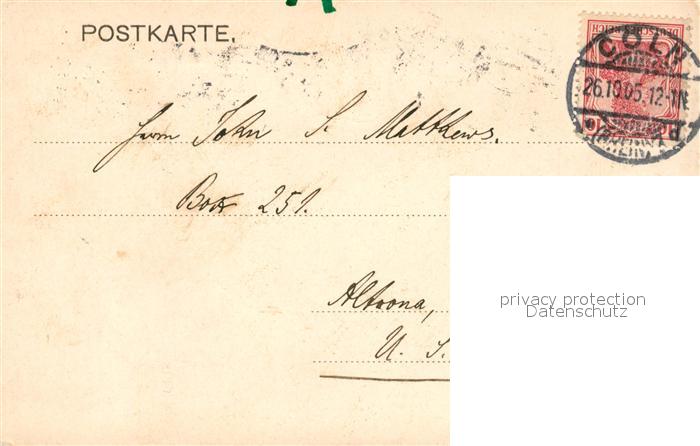 POSTKARTE.
DEUTSCHES REICH
CÖLN
26.10.05.12-1N.
Herrn John S. Matthews.
Box 251.
Altoona,
U. S.
privacy protection
Datenschutz